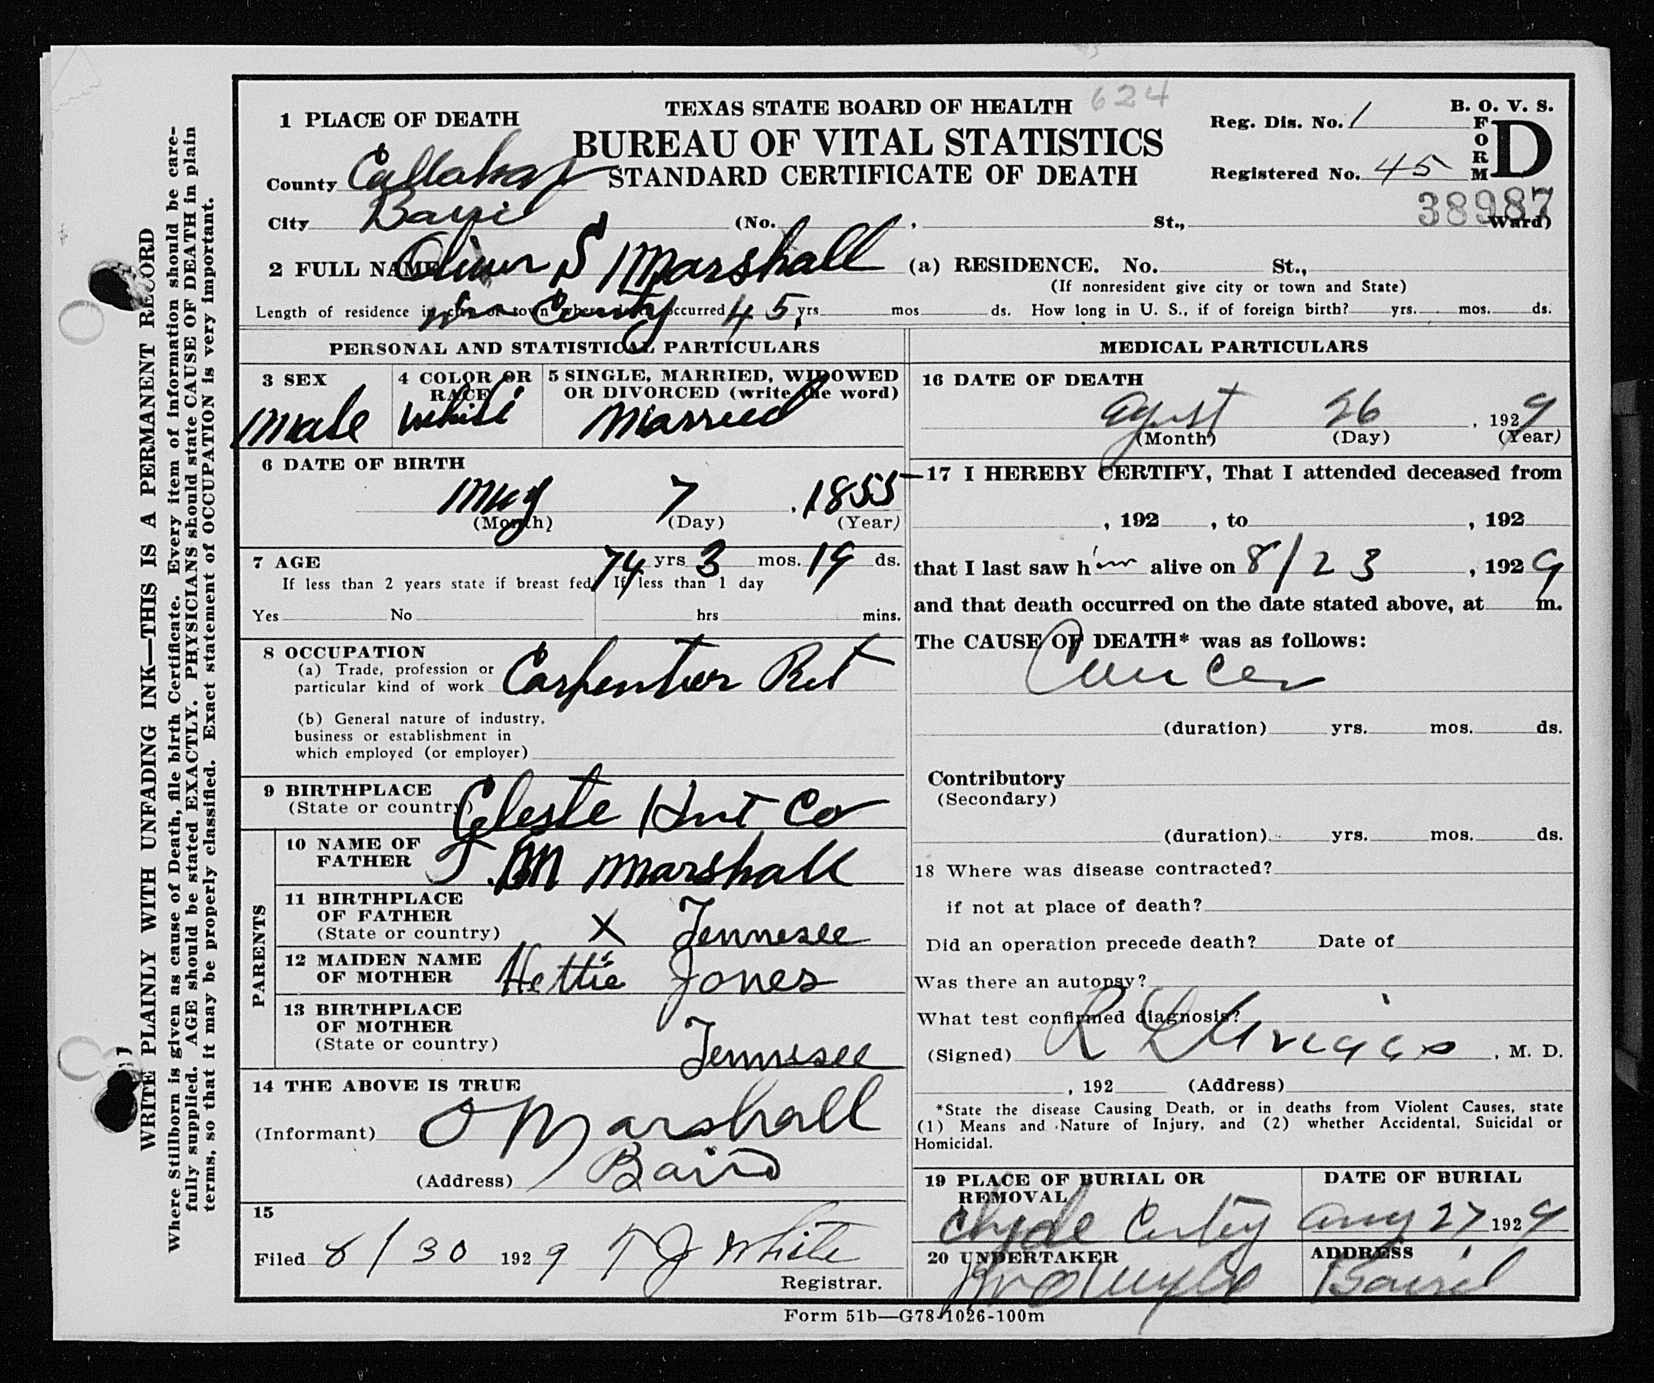 WRITE PLAINLY WITH UNFADING INK—THIS IS A PERMANENT RECORD
Where Stillborn is given as cause of Death, file birth Certificate. Every item of information should be care-
fully supplied. AGE should be stated EXACTLY. PHYSICIANS should state CAUSE OF DEATH in plain
terms, so that it may be properly classified. Exact statement of OCCUPATION is very important.
TEXAS STATE BOARD OF HEALTH 624
BUREAU OF VITAL STATISTICS
STANDARD CERTIFICATE OF DEATH
B. O. V. S.
FORM D
Reg. Dis. No. 1
Registered No. 45
38987
1 PLACE OF DEATH
County Callahan
City (No. , St., Ward)
2 FULL NAME Oliver S Marshall (a) RESIDENCE. No. St.,
(If nonresident give city or town and State)
Length of residence in city or town where death occurred 45 yrs. mos. ds. How long in U. S., if of foreign birth? yrs. mos. ds.
County
PERSONAL AND STATISTICAL PARTICULARS
3 SEX
Male
4 COLOR OR RACE
White
5 SINGLE, MARRIED, WIDOWED
OR DIVORCED (write the word)
Married
6 DATE OF BIRTH
May 7, 1855
(Month) (Day) (Year)
7 AGE 74 yrs 3 mos. 19 ds.
If less than 2 years state if breast fed If less than 1 day
Yes No hrs mins.
8 OCCUPATION
(a) Trade, profession or
particular kind of work Carpentier Ret
(b) General nature of industry,
business or establishment in
which employed (or employer)
9 BIRTHPLACE
(State or country) Celeste Hunt Co
PARENTS
10 NAME OF
FATHER T. M Marshall
11 BIRTHPLACE
OF FATHER
(State or country) X Tennesee
12 MAIDEN NAME
OF MOTHER Hettie Jones
13 BIRTHPLACE
OF MOTHER
(State or country) Tennesee
14 THE ABOVE IS TRUE
(Informant) O Marshall
(Address) Baird
15
Filed 8/30 1929 T J White
Registrar.
MEDICAL PARTICULARS
16 DATE OF DEATH
August 26, 1929
(Month) (Day) (Year)
17 I HEREBY CERTIFY, That I attended deceased from
, 192 , to , 192
that I last saw him alive on 8/23, 1929
and that death occurred on the date stated above, at m.
The CAUSE OF DEATH* was as follows:
Cancer
(duration) yrs. mos. ds.
Contributory
(Secondary)
(duration) yrs. mos. ds.
18 Where was disease contracted?
if not at place of death?
Did an operation precede death? Date of
Was there an autopsy?
What test confirmed diagnosis?
(Signed) R L Griggs, M. D.
, 192 (Address)
*State the disease Causing Death, or in deaths from Violent Causes, state
(1) Means and Nature of Injury, and (2) whether Accidental, Suicidal or
Homicidal.
19 PLACE OF BURIAL OR
REMOVAL
Clyde
DATE OF BURIAL
Aug 27 1929
20 UNDERTAKER
ADDRESS
Baird
Form 51b—G78-1026-100m